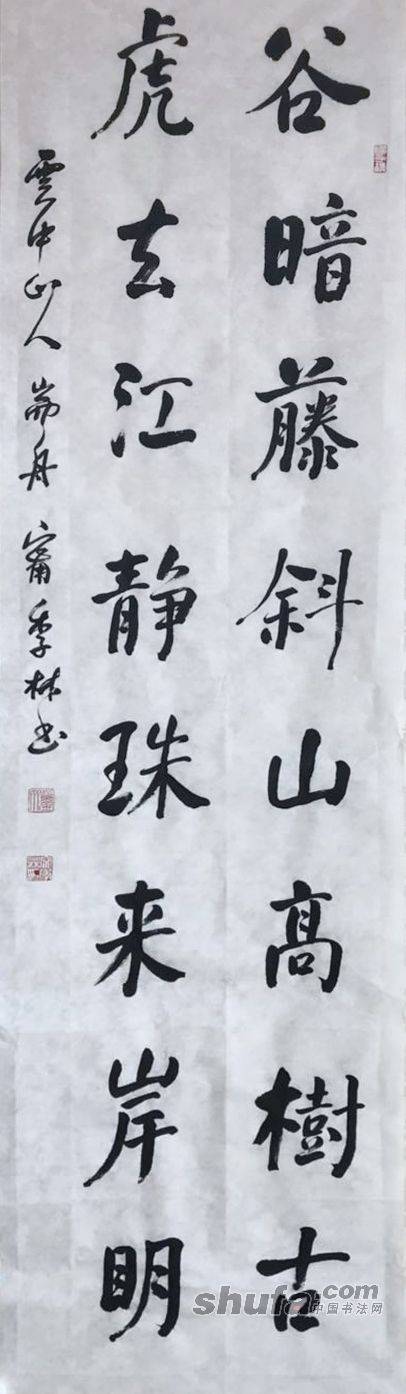 谷暗藤斜山高樹古
虎去江静珠来岸明
雲中山人 崙舟 甯季林书
shufa.com
中国书法网